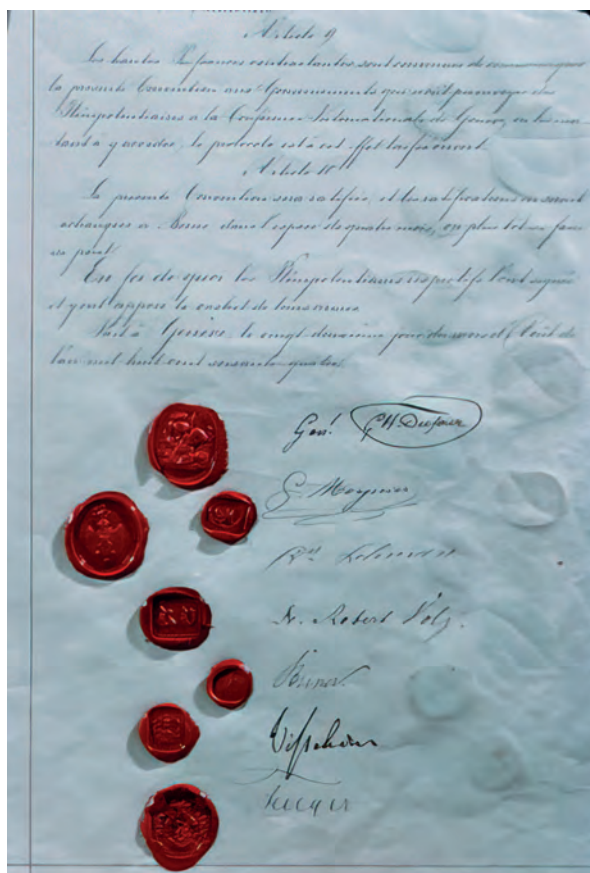 Article 9
Les hautes Puissances contractantes sont convenues de communiquer
la presente Convention aux Gouvernements qui n'ont pu envoyer des
Plénipotentiaires à la Conférence Internationale de Genève, en les invi-
tant à y accéder, le protocole est à cet effet laissé ouvert.
Article 10
La presente Convention sera ratifiée, et les ratifications en seront
echangées à Berne, dans l'espace de quatre mois, ou plus tôt si faire
se peut.
En foi de quoi les Plénipotentiaires respectifs l'ont signée
et y ont apposé le cachet de leurs armes.
Fait à Genève, le vingt deuxième jour du mois d'Août de
l'an mil huit cent soixante quatre.
Gnal G H Dufour
G. Moynier
Dr Lehmann
Dr. Robert Volz.
Steiner.
Visschers